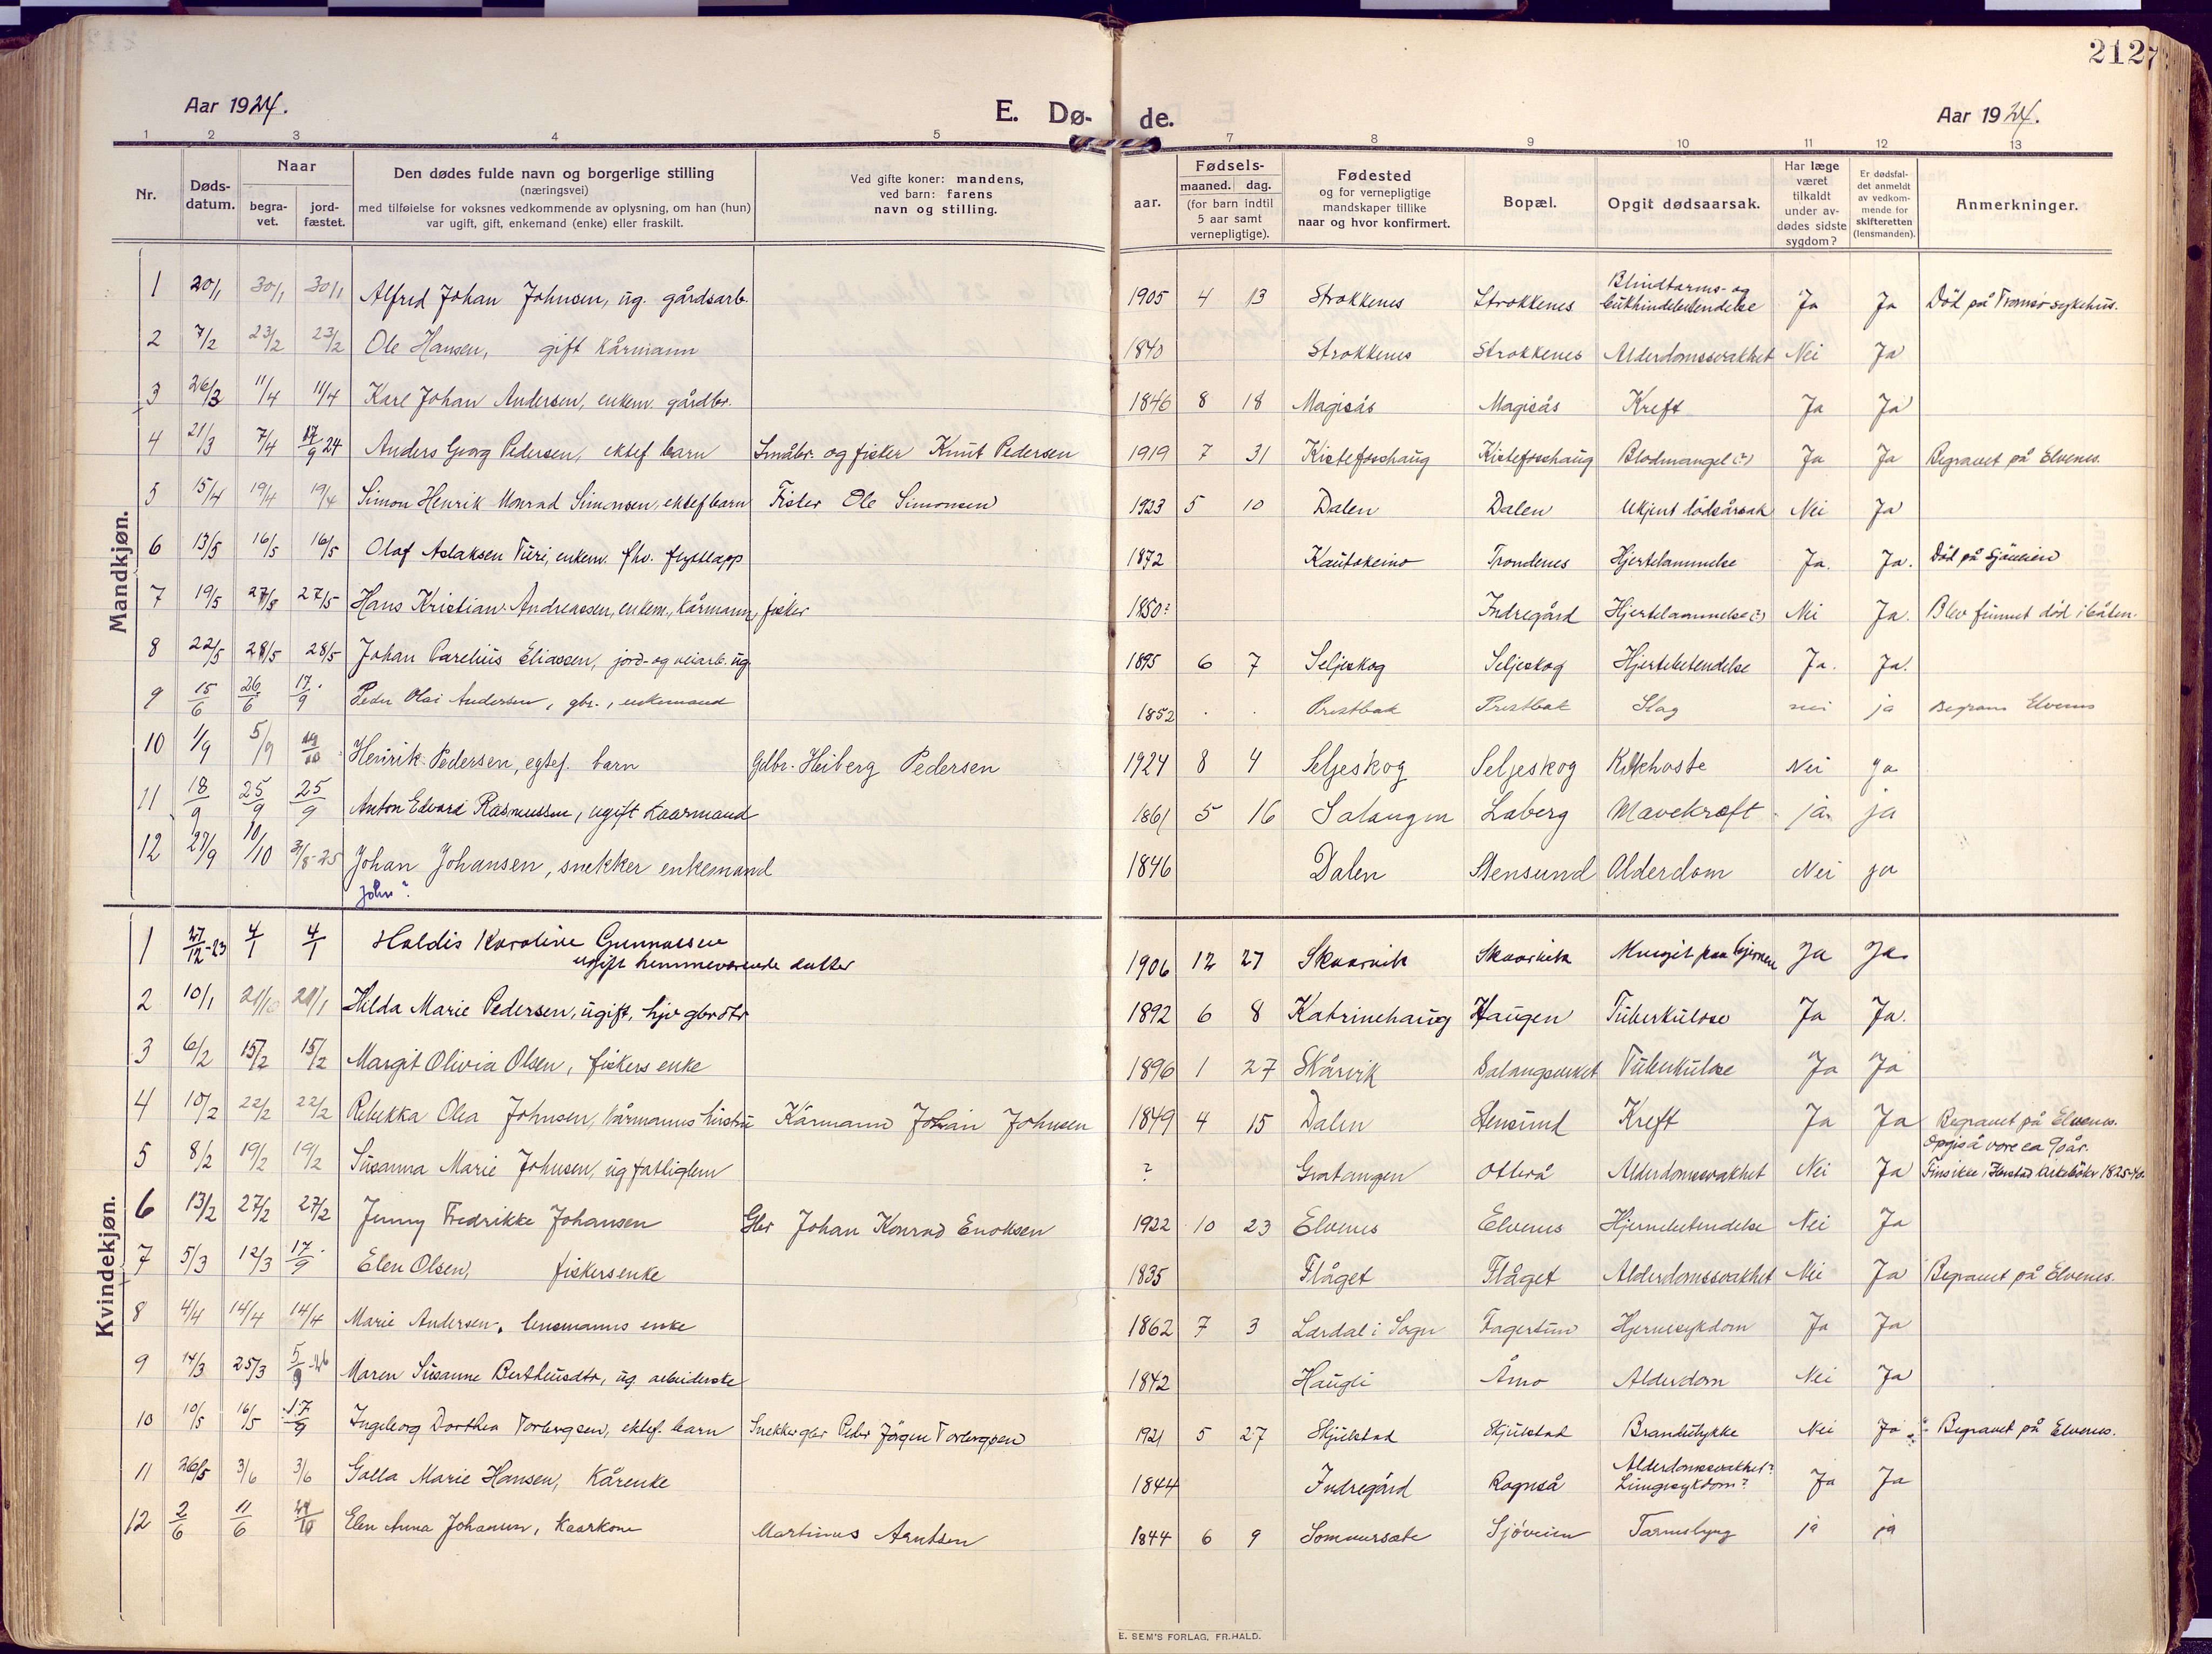 2127
Aar 1924.
E. Dø-
de.
Aar 1924.
1 2 3 4 5 7 8 9 10 11 12 13
Nr. Døds-datum. Naar begra-vet. jord-fæstet. Den dødes fulde navn og borgerlige stilling (næringsvei) med tilføielse for voksnes vedkommende av oplysning, om han (hun) var ugift, gift, enkemand (enke) eller fraskilt. Ved gifte koner: mandens, ved barn: farens navn og stilling. Fødsels- aar. maaned. dag. (for barn indtil 5 aar samt vernepligtige). Fødested og for vernepligtige mandskaper tillike naar og hvor konfirmert. Bopæl. Opgit dødsaarsak. Har læge været tilkaldt under av-dødes sidste sygdom? Er dødsfal-det anmeldt av vedkom-mende for skifteretten (lensmanden). Anmerkninger.
Mandkjøn.
1 20/1 30/1 30/1 Alfred Johan Johnsen, ug. gårdsarb. 1905 4 13 Strokkenes Strokkenes Blindtarms- og bukhindebetendelse Ja Ja Död på Tromsö sykehus.
2 7/2 23/2 23/2 Ole Hansen, gift kårmann 1840 Strokkenes Strokkenes Alderdomssvakhet Nei Ja
3 26/3 11/4 11/4 Karl Johan Andersen, enkem. gårdbr. 1846 8 18 Magisås Magisås Kreft Ja Ja
4 21/3 7/4 17/9 24 Anders Georg Pedersen, ektef. barn Småbr. og fisker Knut Pedersen 1919 7 31 Kistefosshaug Kistefosshaug Blodmangel (?) Ja Ja Begravet på Elvenes.
5 15/4 19/4 19/4 Simon Henrik Monrad Simonsen, ektef barn Fisker Ole Simonsen 1923 5 10 Dalen Dalen Ukjent dødsårsak Nei Ja
6 13/5 16/5 16/5 Olaf Aslaksen Turi, enkem. fhv. flyttlapp 1872 Kautokeino Trondenes Hjertelammelse Ja. Ja. Död på Sjöveien
7 19/5 27/5 27/5 Hans Kristian Andreassen, enkem., kårmann, fisker 1850? Indregård Hjertelammelse (?) Nei Ja. Blev funnet död i båten.
8 22/5 28/5 28/5 Johan Parelius Eliassen, jord- og veiarb. ug 1895 6 7 Seljeskog Seljeskog Hjertebetendelse Ja. Ja.
9 15/6 26/6 17/9 Peder Olai Andersen, gbr., enkemand 1852 Prestbak Prestbak Slag nei ja Begrav Elvenes
10 1/9 5/9 19/10 Henrik Pedersen, egtef. barn Gdbr. Heiberg Pedersen 1924 8 4 Seljeskog Seljeskog Kikhoste Nei Ja
11 18/9 25/9 25/9 Anton Edvard Rasmussen, ugift Kaarmand 1861 5 16 Salangen Laberg Mavekræft ja ja
12 27/9 10/10 3/8-25 Johan Johansen, snekker enkemand 1846 Dalen Stensund Alderdom Nei ja
John?
Kvindekjøn.
1 27/12-23 4/1 4/1 Haldis Karoline Gunnassen ugift hemmeværende datter 1906 12 27 Skaarvik Skaarvik Ja Ja
2 10/1 21/1 Hilda Marie Pedersen, ugift, hjv gbrdtr 1892 6 8 Katrinehaug Haugen Tuberkulose Ja Ja.
3 6/2 15/2 15/2 Margit Olivia Olsen, fiskers enke 1896 1 27 Skårvik Salangsverket Tuberkulose Ja Ja
4 10/2 22/2 22/2 Rebekka Olea Johnsen, kårmanns hustru Kårmann Johan Johnsen 1849 4 15 Dalen Stensund Kreft Ja Ja Begravet på Elvenes.
5 8/2 19/2 19/2 Susanna Marie Johnsen, ug fattiglem ? Gratangen Otterå Alderdomssvakhet Nei Ja Opgis å være ca 90 år. Fins ikke i Ibestad kirkebøker 1825-40.
6 13/2 27/2 27/2 Jenny Fredrikke Johansen Gbr Johan Konrad Enoksen 1922 10 23 Elvenes Elvenes Hjernebetendelse Nei Ja
7 5/3 12/3 17/9 Elen Olsen, fiskersenke 1835 Flåget Flåget Alderdomssvakhet Nei Ja Begravet på Elvenes.
8 4/4 14/4 14/4 Marie Andersen, lensmanns enke 1862 7 3 Lærdal i Sogn Fagertun Hjernesykdom Ja Ja
9 14/3 25/3 5/9-26 Maren Susanne Bertheusdtr, ug. arbeiderske 1842 Haugli Åmo Alderdom Nei Ja
10 10/5 16/5 17/9 Ingeborg Dorthea Torbergsen, ektef. barn Snekker gbr Peder Jörgen Torbergsen 1921 5 27 Skjulstad Skjulstad Brandulykke Nei Ja Begravet på Elvenes.
11 26/5 3/6 3/6 Golla Marie Hansen, Kårenke 1844 Indregård Rognså Alderdomssvakhet? Lungesykdom? Ja Ja
12 2/6 11/6 Elen Anna Johansen, Kaarkone Martinus Arntsen 1844 6 9 Sommersæte Sjöveien Tarmslyng ja ja
E. SEM'S FORLAG, FR.HALD.